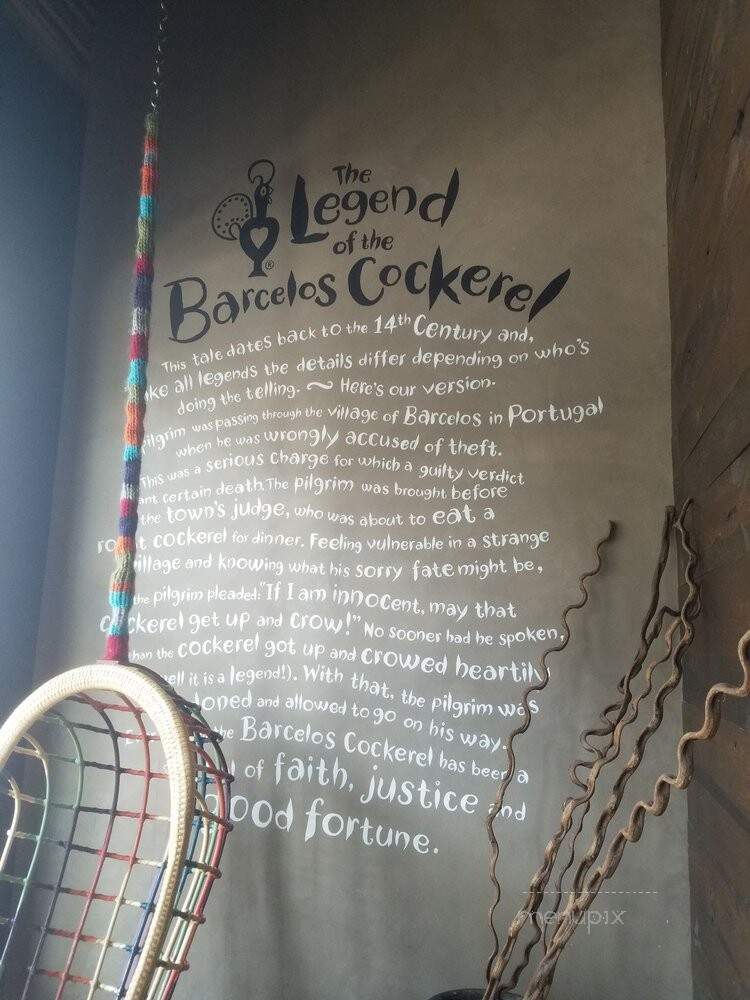 The
Legend
of the
®
Barcelos Cockerel
This tale dates back to the 14th Century and,
all legends the details differ depending on who's
doing the telling. ~ Here's our version.
pilgrim was passing through the village of Barcelos in Portugal
when he was wrongly accused of theft.
This was a serious charge for which a guilty verdict
certain death. The pilgrim was brought before
the town's judge, who was about to eat a
cockerel for dinner. Feeling vulnerable in a strange
village and knowing what his sorry fate might be,
the pilgrim pleaded: "If I am innocent, may that
cockerel get up and crow!" No sooner had he spoken,
than the cockerel got up and crowed heartily
well it is a legend!). With that, the pilgrim was
and allowed to go on his way.
the Barcelos Cockerel has been a
of faith, justice and
good fortune.
menupix